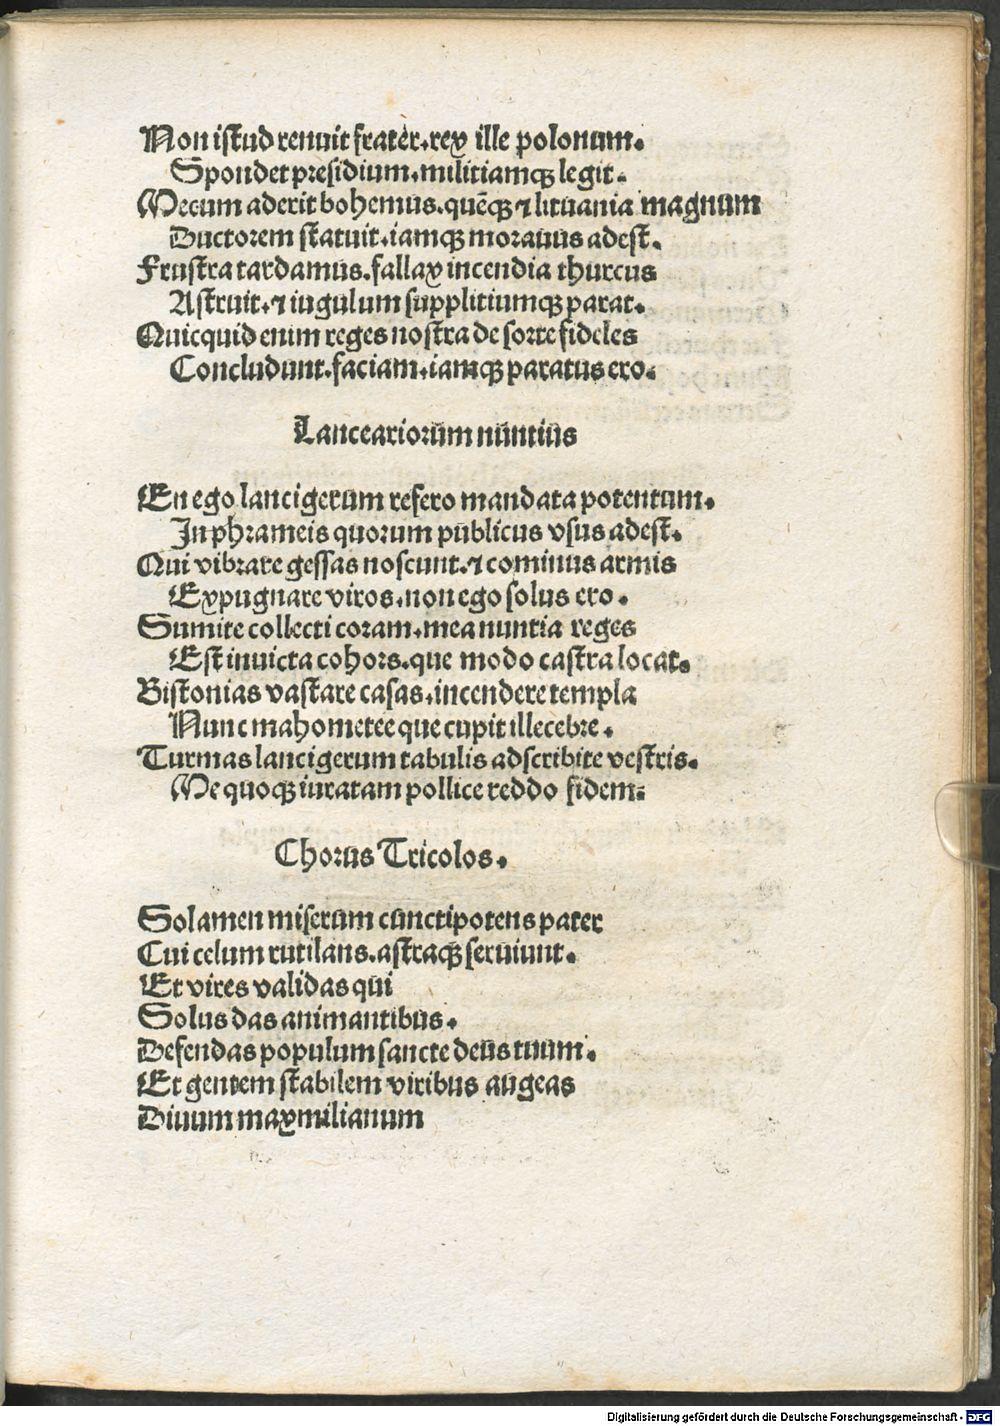 Non istud renuit frater.rex ille polonum.
Spondet presidium.militiamqꝫ legit.
Mecum aderit bohemus.quēqꝫ ⁊ lituania magnum
Ductorem statuit.iamqꝫ morauus adest.
Frustra tardamus.fallax incendia thurcus
Astruit.⁊ iugulum supplitiumqꝫ parat.
Quicquid enim reges nostra de sorte fideles
Concludunt.faciam.iamqꝫ paratus ero.
Lanceariorum nuntius
En ego lancigerum refero mandata potentum.
In phrameis quorum publicus vsus adest.
Qui vibrare gessas noscunt.⁊ cominus armis
Expugnare viros.non ego solus ero.
Sumite collecti coram.mea nuntia reges
Est inuicta cohors.que modo castra locat.
Bistonias vastare casas.incendere templa
Nunc mahometee que cupit illecebre.
Turmas lancigerum tabulis adscribite vestris.
Me quoqꝫ iuratam pollice reddo fidem:
Chorus Tricolos.
Solamen miserum cunctipotens pater
Cui celum rutilans.astraqꝫ seruiunt.
Et vires validas qui
Solus das animantibus.
Defendas populum sancte deus tuum.
Et gentem stabilem viribus augeas
Diuum maxmilianum
Digitalisierung gefördert durch die Deutsche Forschungsgemeinschaft - DFG